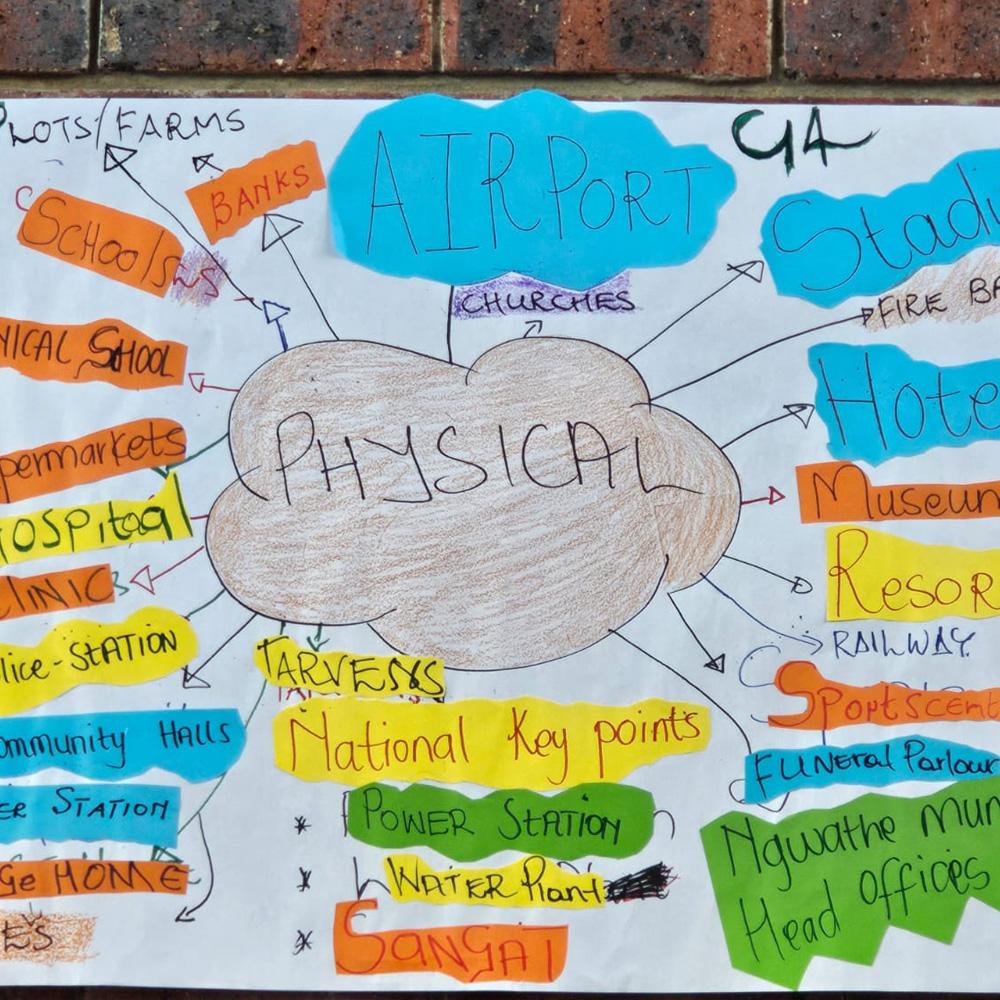 PLOTS/FARMS
BANKS
AIRPORT
G4
Schools
Stadi
CHURCHES
FIRE BA
NICAL SCHOOL
Hote
PHYSICAL
permarkets
Museum
HOSPital
CLINIC
Resor
lice-STATION
RAILWAY.
TARVENS
Sportscent
ommunity HALLS
National Key points
FUNEral Parlour
ER STATION
* POWER STATION
Ngwathe mun
Head offices
ge HOME
* WATER Plant
ES
* SANGAT